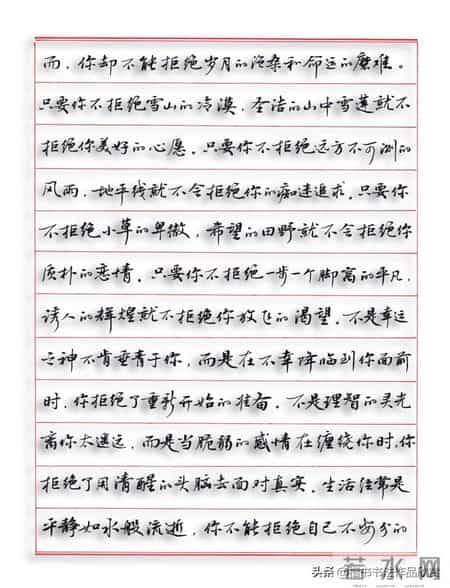 而，你却不能拒绝岁月的沧桑和命运的磨难。
只要你不拒绝雪山的冷漠，圣洁的山中雪莲就不
拒绝你美好的心愿。只要你不拒绝远方不可测的
风雨，地平线就不会拒绝你的痴迷追求。只要你
不拒绝小草的卑微，希望的田野就不会拒绝你
质朴的恋情。只要你不拒绝一步一个脚窝的平凡，
诱人的辉煌就不拒绝你放飞的渴望。不是幸运
之神不肯垂青于你，而是在不幸降临到你面前
时，你拒绝了重新开始的准备。不是理智的灵光
离你太遥远，而是当脆弱的感情在缠绕你时，你
拒绝了用清醒的头脑去面对真实。生活经常是
平静如水般流逝，你不能拒绝自己不安分的
头条 书法作品欣赏
若水网